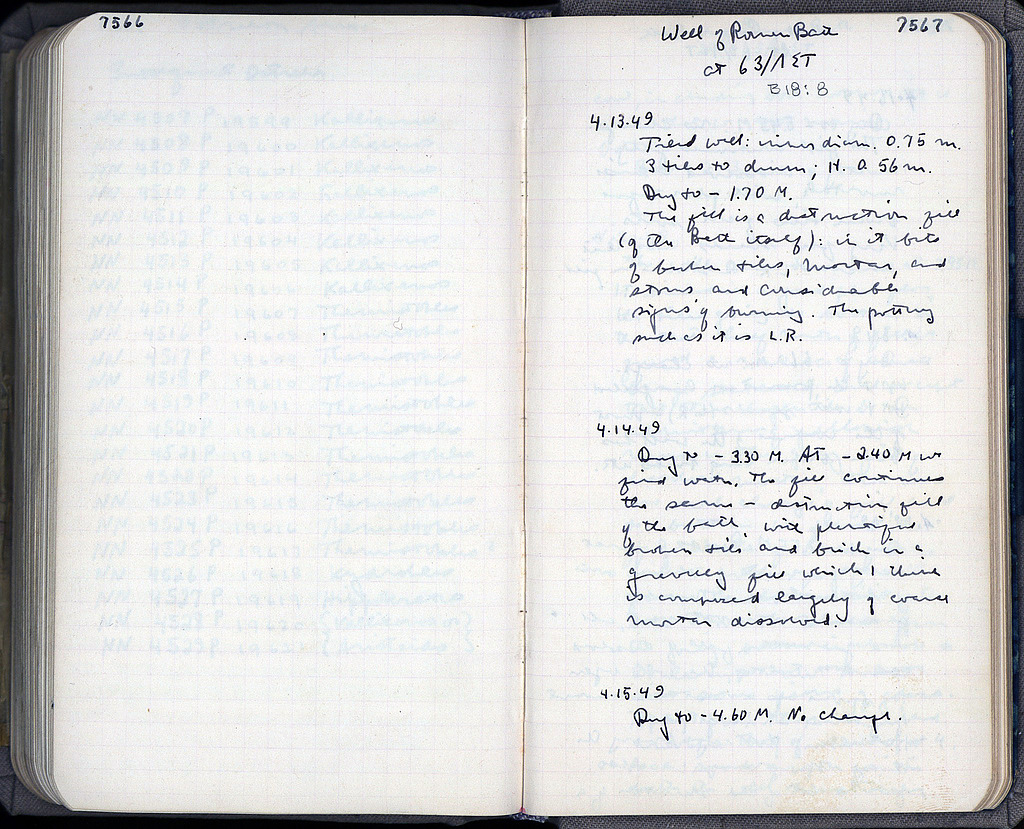 7566
7567
Well of Roman Bath
at 63/ΛΣΤ
B 18:8
4.13.49
Tiled well: inner diam. 0.75 m.
3 tiles to drum; H. 0.56 m.
Dug to - 1.70 M.
The fill is a destruction fill
(of the Bath itself): in it bits
of broken tiles, mortar, and
stones and considerable
signs of burning. The pottery
such as it is L.R.
4.14.49
Dug to - 3.30 M. At - 2.40 M we
find water. The fill continues
the same - destruction fill
of the bath with plentiful
broken tiles and brick in a
gravelly fill which I think
is composed largely of coarse
mortar dissolved.
4.15.49
Dug to - 4.60 M. No change.